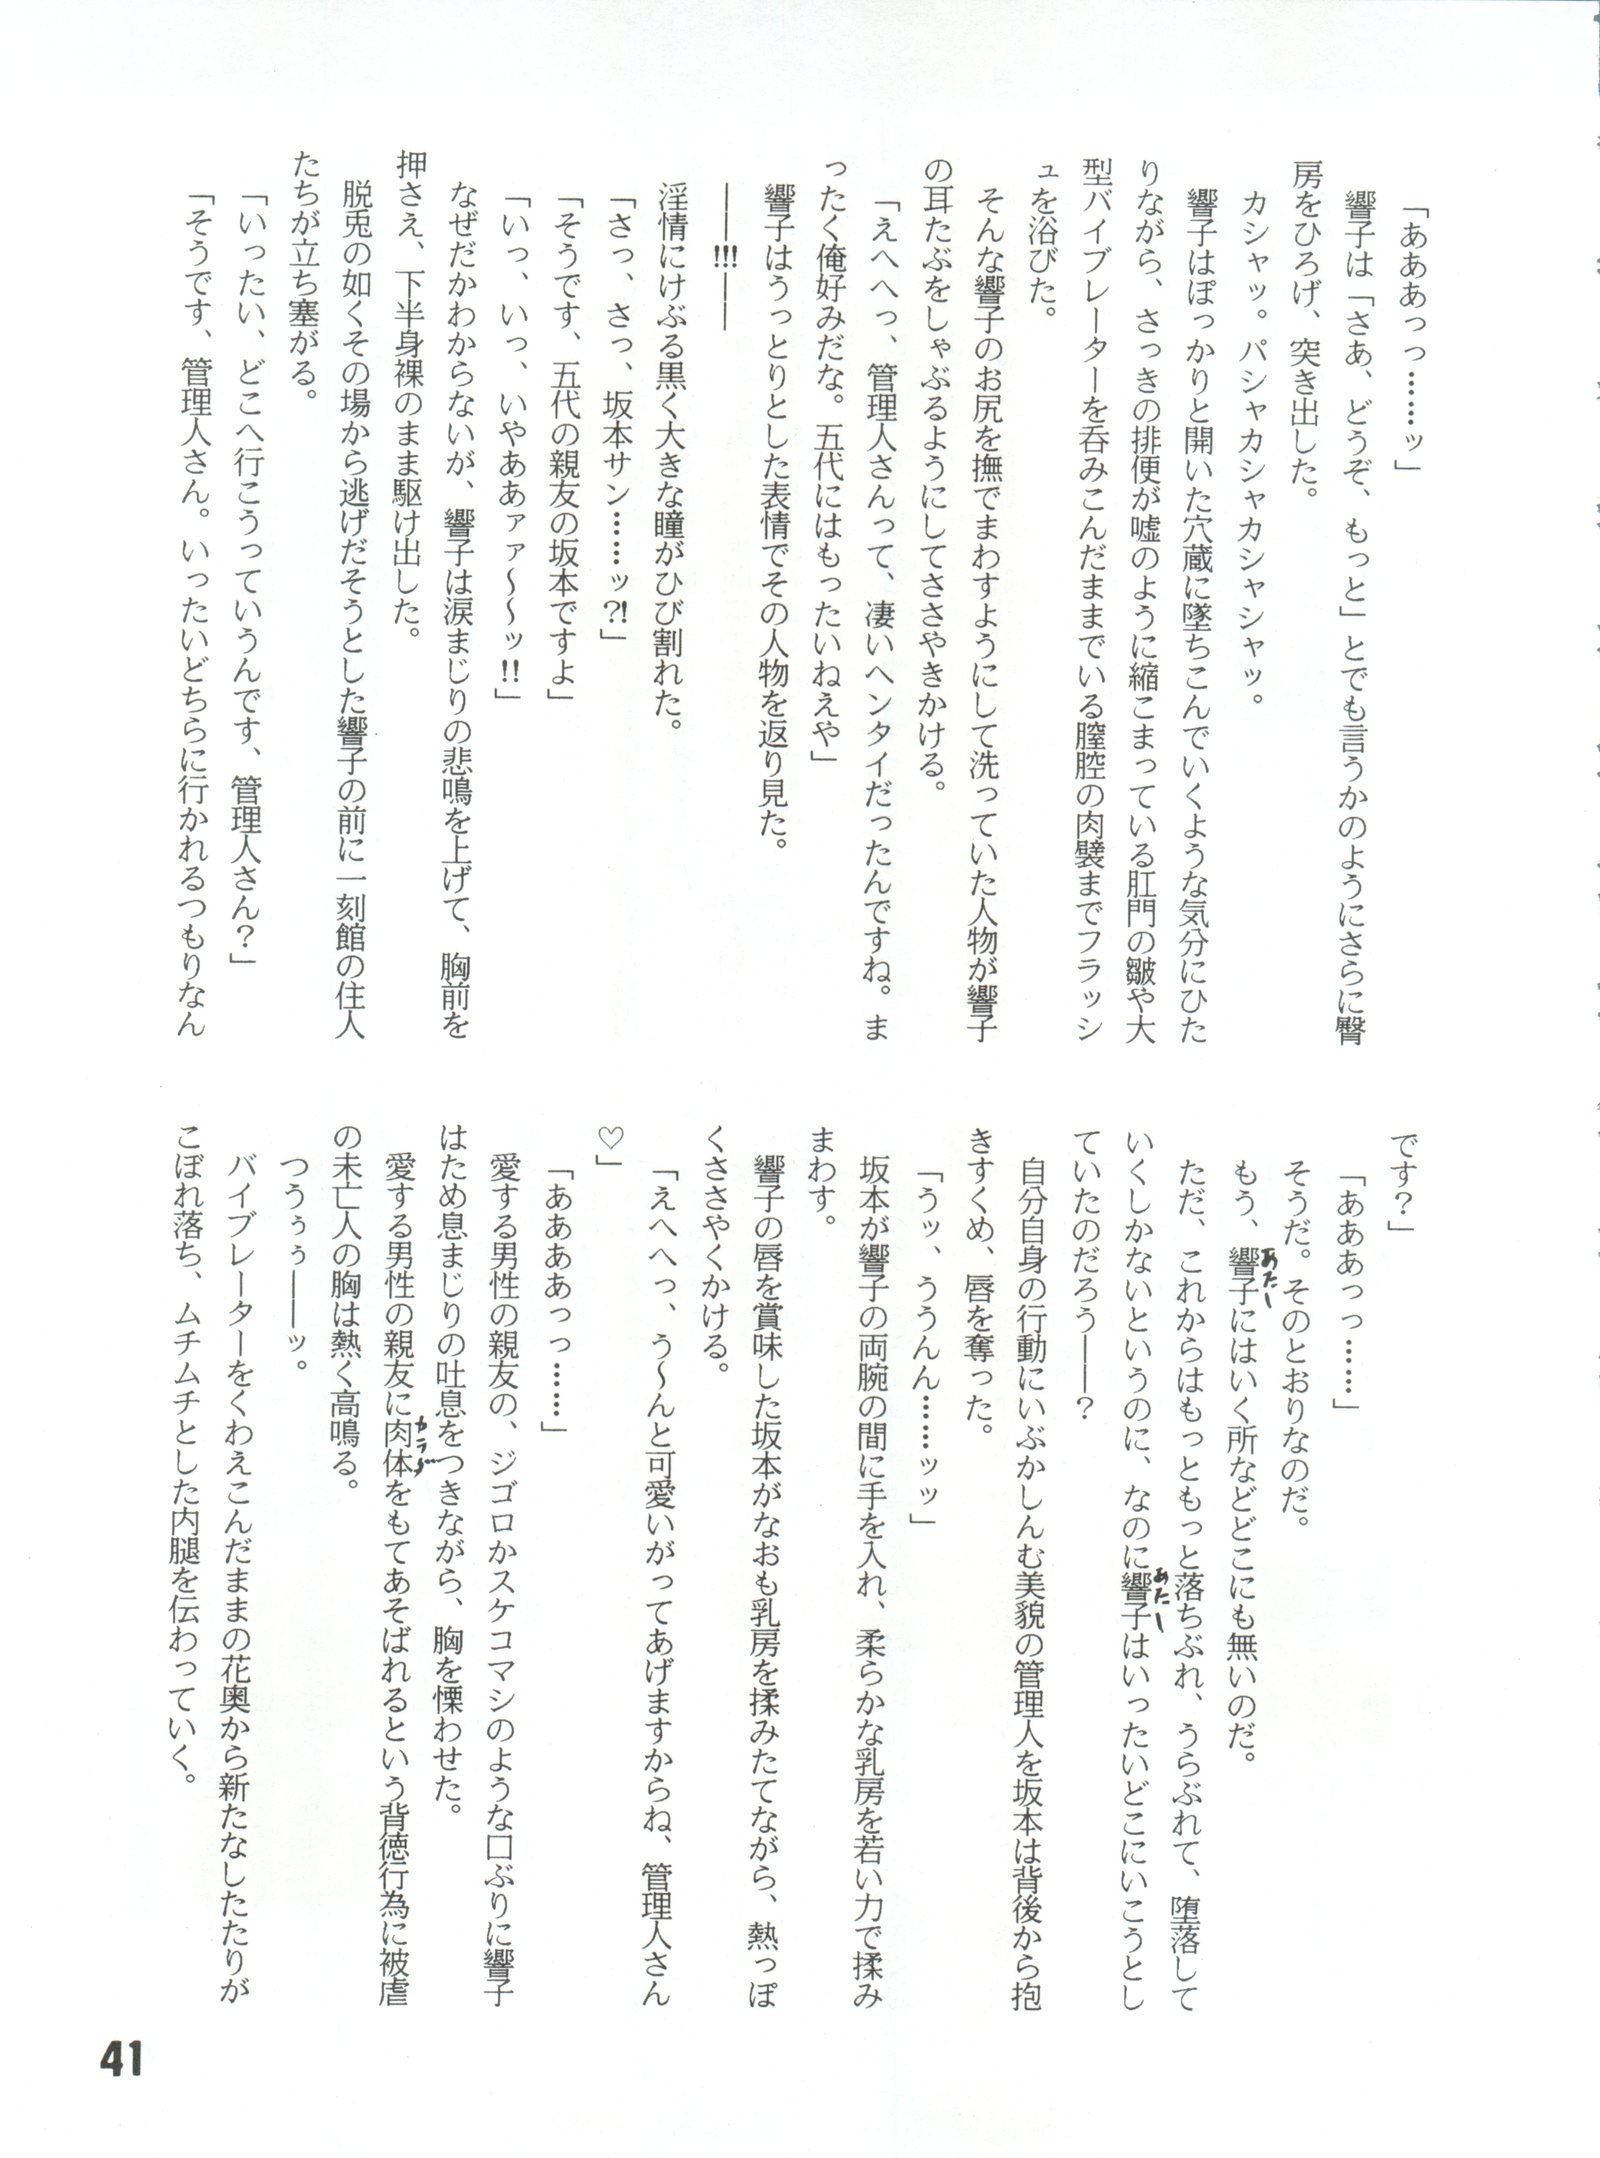 「あああっっ……ッ」
響子は「さあ、どうぞ、もっと」とでも言うかのようにさらに臀
房をひろげ、突き出した。
カシャッ。パシャカシャカシャシャッ。
響子はぽっかりと開いた穴蔵に墜ちこんでいくような気分にひた
りながら、さっきの排便が嘘のように縮こまっている肛門の皺や大
型バイブレーターを呑みこんだままでいる膣腔の肉襞までフラッシ
ュを浴びた。
そんな響子のお尻を撫でまわすようにして洗っていた人物が響子
の耳たぶをしゃぶるようにしてささやきかける。
「えへへっ、管理人さんって、凄いヘンタイだったんですね。ま
ったく俺好みだな。五代にはもったいねえや」
響子はうっとりとした表情でその人物を返り見た。
――!!!――
淫情にけぶる黒く大きな瞳がひび割れた。
「さっ、さっ、坂本サン……ッ?!」
「そうです、五代の親友の坂本ですよ」
「いっ、いっ、いやああァァ～～ッ!!」
なぜだかわからないが、響子は涙まじりの悲鳴を上げて、胸前を
押さえ、下半身裸のまま駆け出した。
脱兎の如くその場から逃げだそうとした響子の前に一刻館の住人
たちが立ち塞がる。
「いったい、どこへ行こうっていうんです、管理人さん？」
「そうです、管理人さん。いったいどちらに行かれるつもりなん
です？」
「あああっっ……」
そうだ。そのとおりなのだ。
もう、響子にはいく所などどこにも無いのだ。
あたし
ただ、これからはもっともっと落ちぶれ、うらぶれて、堕落して
いくしかないというのに、なのに響子はいったいどこにいこうとし
あたし
ていたのだろう――？
自分自身の行動にいぶかしんむ美貌の管理人を坂本は背後から抱
きすくめ、唇を奪った。
「うッ、ううんん……ッッ」
坂本が響子の両腕の間に手を入れ、柔らかな乳房を若い力で揉み
まわす。
響子の唇を賞味した坂本がなおも乳房を揉みたてながら、熱っぽ
くささやくかける。
「えへへっ、う～んと可愛いがってあげますからね、管理人さん
♡」
「ああああっっ……」
愛する男性の親友の、ジゴロかスケコマシのような口ぶりに響子
はため息まじりの吐息をつきながら、胸を慄わせた。
愛する男性の親友に肉体をもてあそばれるという背徳行為に被虐
カラダ
の未亡人の胸は熱く高鳴る。
つうぅぅ――ッ。
バイブレーターをくわえこんだままの花奥から新たなしたたりが
こぼれ落ち、ムチムチとした内腿を伝わっていく。
41